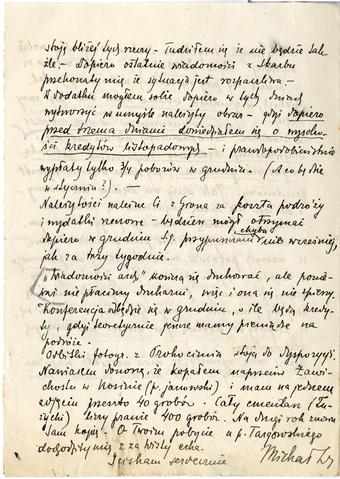 stoją bliżej tych rzeczy. - Łudziłem się że nie będzie tak
źle. - Dopiero ostatnie wiadomości z Skarbu
przekonały mię że sytuacja jest rozpaczliwa. -
W dodatku mogłem sobie dopiero w tych dniach
wytworzyć w umyśle należyty obraz - gdyż dopiero
przed trzema dniami dowiedziałem się o wysokości
kredytów listopadowych - i prawdopodobieństwie
wypłaty tylko 3/4 poborów w grudniu. (A co będzie
w styczniu?). -
Należytości należne Ci z grona za koszta podróży
i wydatki rzeczowe - będziesz mógł otrzymać
dopiero w grudniu t.j. przypuszczam chyba nie wcześniej,
jak za trzy tygodnie.
"Wiadomości arch" kończą się drukować, ale ponieważ
nie płacimy drukarni, więc i ona się nie spieszy.
Konferencja odbędzie się w grudniu, o ile będą kredyty,
gdyż teoretycznie jeszcze mamy pieniądze na
podróże.
Odbitki fotogr. z Prokocimia stoją do dyspozycji.
Nawiasem donoszę, że kopałem naprzeciw Zawichostu
w Kosinie (p. janowski) i mam na jednem
zdjęciu przeszło 40 grobów. Cały cmentarz (Łużycki)
liczy pewnie 400 grobów. Na drugi rok znowu
tam kopię. - O Twoim pobycie u p. Targowskiego
doszły mię z za Wisły echa.
Ściskam serdecznie
Michał